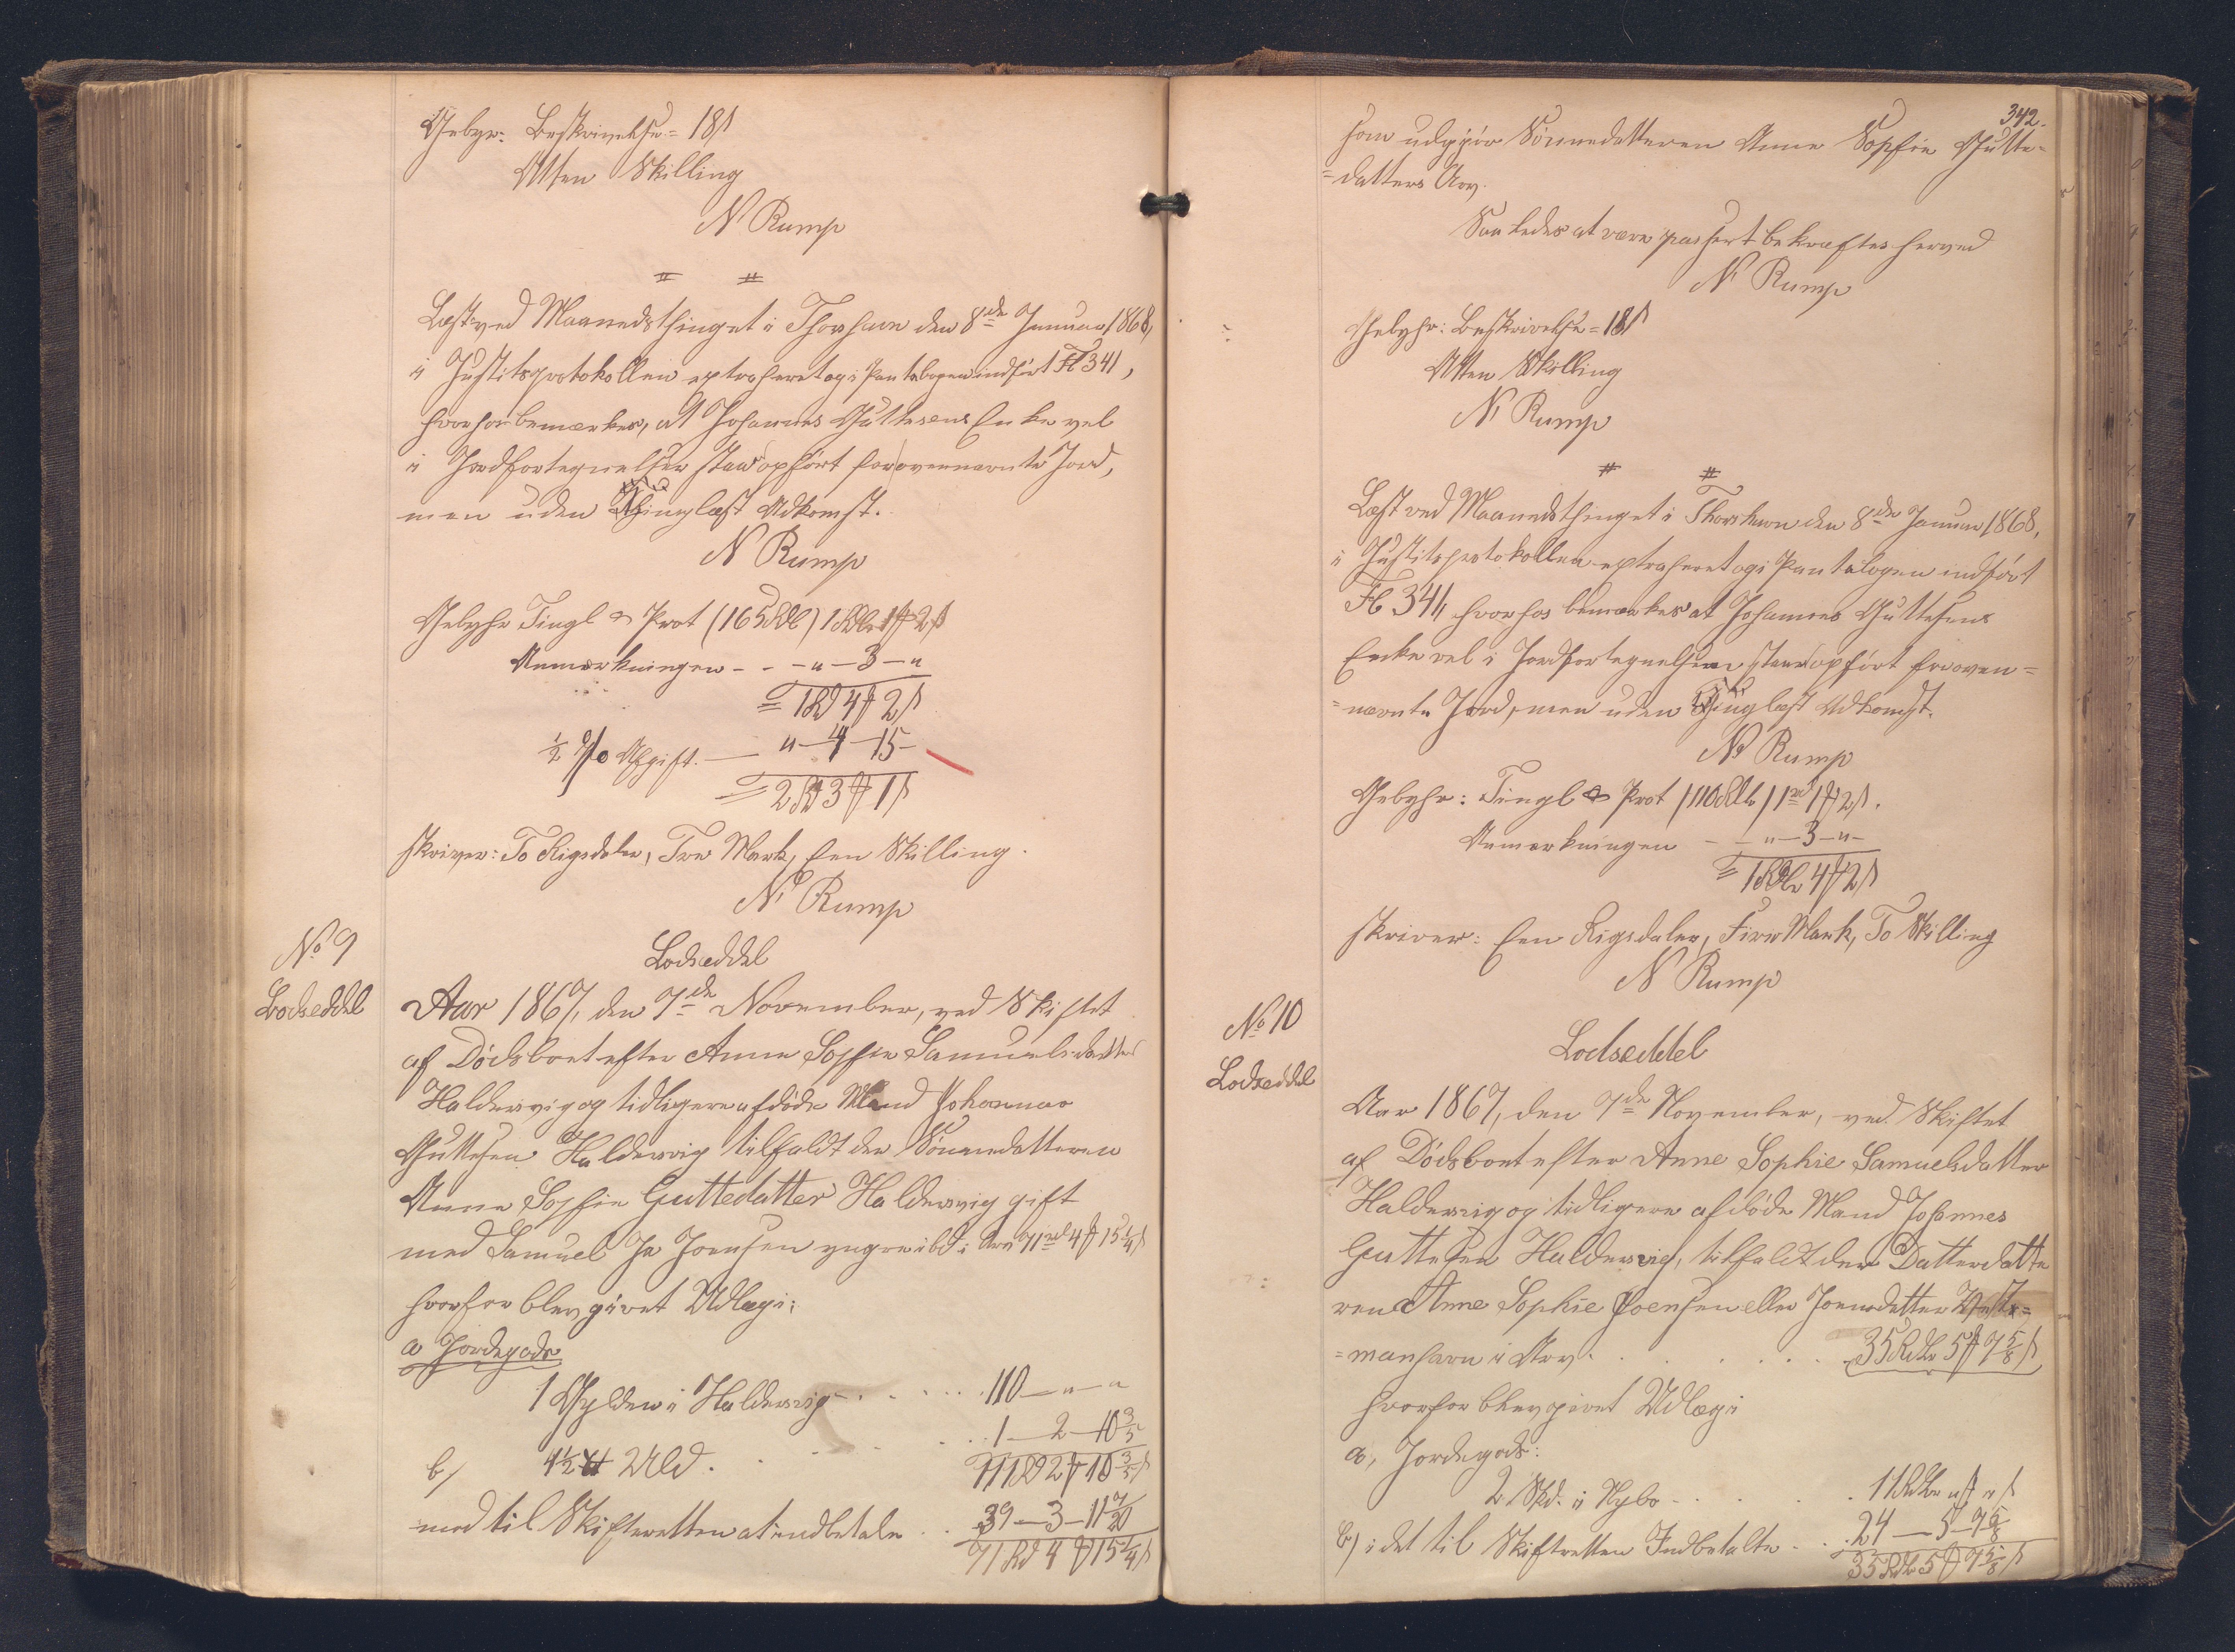 Gebyr: Beskrivelse = 18 ß
Atten Skilling
N Rump
Læst ved Maanedsthinget i Thorshavn den 8de Januar 1868,
i Justitsprotokollen extraheret og i Pantebogen indført Fl 341,
hvorhos bemærkes, at Johannes Guttesens Enke vel
i Jordfortegnelsen staar opført for ovennævnte Jord,
men uden Thinglæst Adkomst.
N Rump
Gebyhr Tingl & Prot (165 Rdl) 1 Rdlr 1 # 2 ß
Anmærkningen - - - " - 3 - "
= 1 Rd 4 # 2 ß
½ % Afgift. — " - 4 - 15 -
= 2 Rd 3 # 1 ß
skriver: To Rigsdaler, Tre Mark, Een Skilling.
N Rump
No 9
Lodseddel
Lodseddel
Aar 1867, den 7de November, ved Skiftet
af Dødsboet efter Anne Sophie Samuelsdatter
Haldersvig og tidligere afdøde Mand Johannes
Guttesen Haldersvig tilfaldt der Sønnedatteren
Anne Sophie Guttedatter Haldersvig gift
med Samuel Joensen yngre ibd i Arv 71 rd 4 # 15 ¼ ß
hvorfor blev givet Udlæg i:
a Jordegods
1 Gylden i Haldersvig . . . . . 110 — " — "
b) 4½ ℔ Uld . . . . 1 — 2 — 10 3/5
111 Rd 2 # 10 3/5 ß
mod til Skifteretten at indbetale . . 39 — 3 — 11 7/20
71 Rd 4 # 15 ¼ ß
342.
som udgjør Sønnedatteren Anne Sophie Gutte-
=datters Arv.
Saaledes at være passert bekræftes herved
N Rump
Gebyhr: Beskrivelse = 18 ß
Atten Skilling
N Rump
Læst ved Maanedsthinget i Thorshavn den 8de Januar 1868,
i Justitsprotokollen extraheret og i Pantebogen indført
Fl 341, hvorhos bemærkes at Johannes Guttesens
Enke vel i Jordfortegnelsen staar opført for oven=
=nævnte Jord, men uden Thinglæst Adkomst.
N Rump
Gebyhr: Tingl & Prot (110 Rdlr) 1 rd 1 # 2 ß.
Anmærkningen - - " - 3 - " -
= 1 Rdlr 4 # 2 ß
skriver: Een Rigsdaler, Fire Mark, To Skilling
N Rump
No 10
Lodseddel
Lodseddel
Aar 1867, den 7de November, ved Skiftet
af Dødsboet efter Anne Sophie Samuelsdatter
Haldersvig og tidligere afdøde Mand Johannes
Guttesen Haldersvig, tilfaldt der Datterdatte
ren Anne Sophie Joensen eller Joensdatter Vest=
=manhavn i Arv . . . . . 35 Rdlr 5 # 7 5/8 ß
hvorfor blev givet Udlæg i
a, Jordegods:
2 Skd. i Nybo . . . . 11 Rdlr " # " ß
b) i det til Skifteretten Indbetalte . . 24 — 5 — 7 5/8
35 Rdlr 5 # 7 5/8 ß